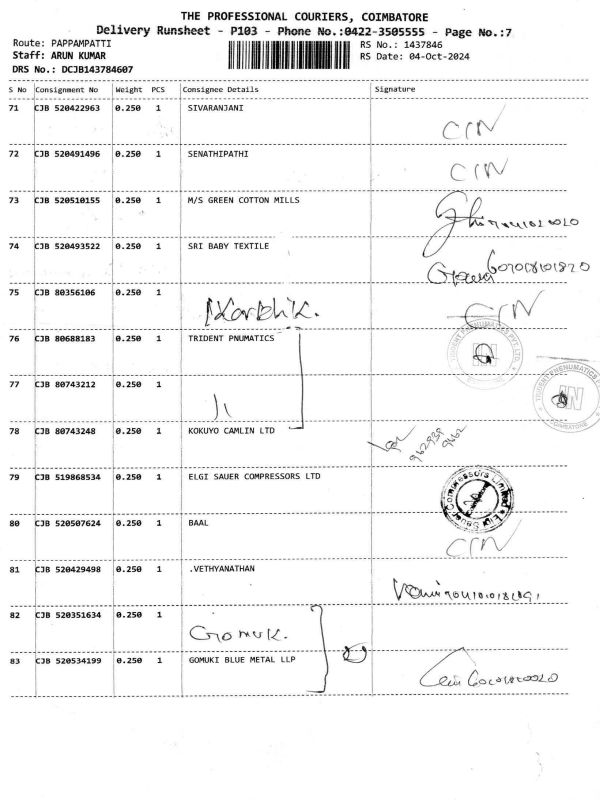 THE PROFESSIONAL COURIERS, COIMBATORE
Delivery Runsheet - P103 - Phone No.:0422-3505555 - Page No.:7
Route: PAPPAMPATTI RS No.: 1437846
Staff: ARUN KUMAR RS Date: 04-Oct-2024
DRS No.: DCJB143784607
S No Consignment No Weight PCS Consignee Details Signature
71 CJB 520422963 0.250 1 SIVARANJANI
CIN
72 CJB 520491496 0.250 1 SENATHIPATHI
CIN
73 CJB 520510155 0.250 1 M/S GREEN COTTON MILLS
74 CJB 520493522 0.250 1 SRI BABY TEXTILE
75 CJB 80356106 0.250 1
Karthik. CIN
76 CJB 80688183 0.250 1 TRIDENT PNUMATICS
TRIDENT PNEUMATICS PVT. LTD.
77 CJB 80743212 0.250 1
TRIDENT PNEUMATICS
COIMBATORE
78 CJB 80743248 0.250 1 KOKUYO CAMLIN LTD
79 CJB 519868534 0.250 1 ELGI SAUER COMPRESSORS LTD
Elgi Sauer Compressors Limited
80 CJB 520507624 0.250 1 BAAL
CIN
81 CJB 520429498 0.250 1 .VETHYANATHAN
82 CJB 520351634 0.250 1
Gomuk.
83 CJB 520534199 0.250 1 GOMUKI BLUE METAL LLP